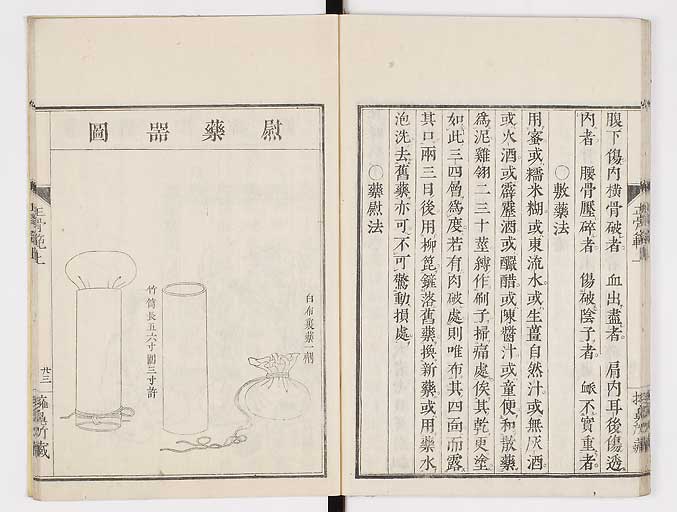 腹下傷內橫骨破者　血出盡者。　肩內耳後傷透
內者　腰骨壓碎者　傷破陰子者　脈不實重者。
○敷藥法
用蜜或糯米糊或東流水或生薑自然汁或無灰酒
或火酒或霹靂酒或釅醋或陳醬汁或童便和散藥
爲泥雞翎二三十莖縛作刷子掃痛處俟其乾更塗
如此三四層爲度若有肉破處則唯布其四面而露
其口兩三日後用柳篦鏟落舊藥換新藥或用藥水
泡洗去舊藥亦可不可驚動損處
○藥熨法
熨藥器圖
白布裹藥一劑
竹筒長五六寸圍三寸許
正骨範上
廿三